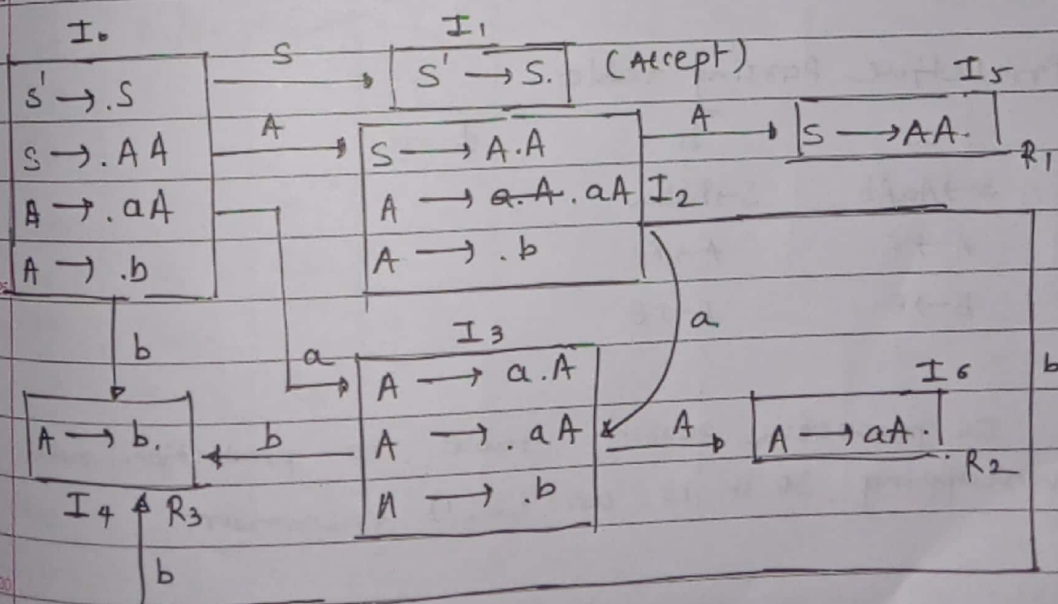 I₀
S' → .S
S → .AA
A → .aA
A → .b
S
A
a
b
I₁
S' → S.
(Accept)
S → A.A
A → a.A .aA
A → .b
I₂
A
I₅
S → AA.
R₁
a
b
I₃
A → a.A
A → .aA
A → .b
b
A
I₆
A → aA.
R₂
A → b.
I₄
R₃
b